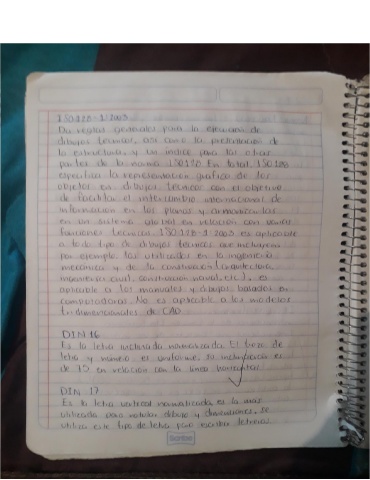 ISO 128-1:2003
Da reglas generales para la ejecución de
dibujos técnicos, así como la presentación de
la estructura y un índice para las otras
partes de la norma ISO 128 En total, ISO 128
especifica la representación gráfica de los
objetos en dibujos técnicos con el objetivo
de facilitar el intercambio internacional de
información en los planos y armonizarlas
en un sistema global en relación con varias
funciones técnicas ISO 128-1 2003 es aplicable
a todo tipo de dibujos técnicos que incluyen
por ejemplo los utilizados en la ingeniería
mecánica y de la construcción (arquitectura,
ingenieros civil, construcción naval, etc), es
aplicable a los manuales y dibujos basados en
computadoras. No es aplicable a los modelos
tridimensionales de CAD.
DIN 16
Es la letra inclinada normalizada El trazo de
letra y número es uniforme, su inclinación es
de 75 en relación con la línea horizontal
DIN. 17
Es la letra vertical normalizada, es la más
utilizada para rotular dibujo y dimensiones, se
utiliza este tipo de letra para escribir letreros
Scribe